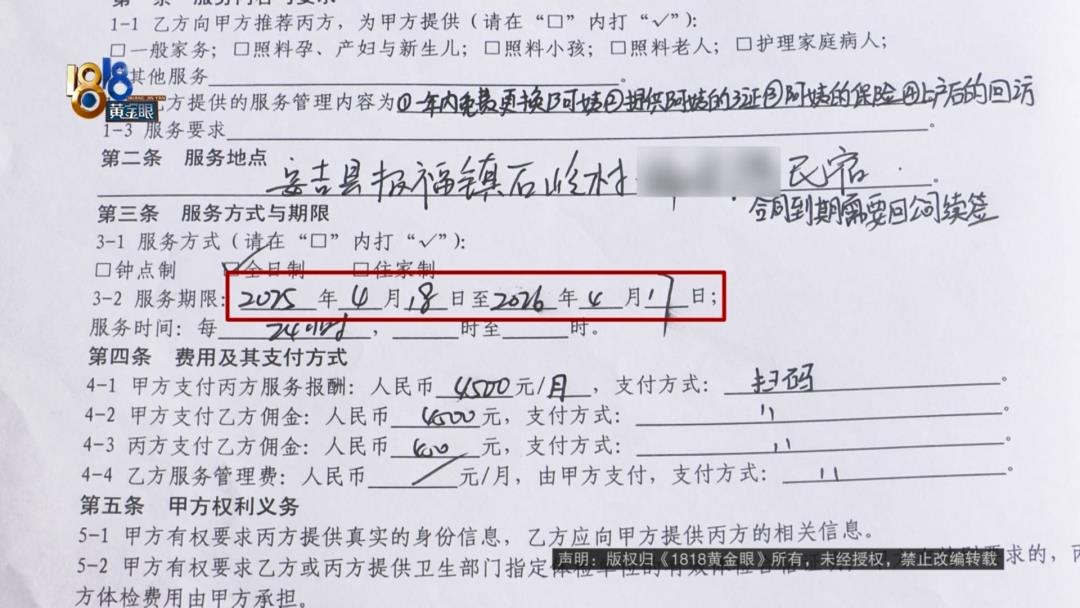 1-1 乙方向甲方推荐丙方，为甲方提供（请在“□”内打“√”）：
□一般家务；□照料孕、产妇与新生儿；□照料小孩；□照料老人；□护理家庭病人；
其他服务
1818
黄金眼
乙方提供的服务管理内容为①一年内免费更换阿姨②提供阿姨的3证③阿姨的保险④上户后的回访
1-3 服务要求
第二条 服务地点
安吉县报福镇石岭村 民宿
合同到期需要回公司续签
第三条 服务方式与期限
3-1 服务方式（请在“□”内打“√”）：
□钟点制 ☑全日制 □住家制
3-2 服务期限：2025年4月18日至2026年4月17日；
服务时间：每24小时，时至时。
第四条 费用及其支付方式
4-1 甲方支付丙方服务报酬：人民币4500元/月，支付方式：扫码
4-2 甲方支付乙方佣金：人民币4500元，支付方式：〃
4-3 丙方支付乙方佣金：人民币400元，支付方式：〃
4-4 乙方服务管理费：人民币/元/月，由甲方支付，支付方式：〃
第五条 甲方权利义务
5-1 甲方有权要求丙方提供真实的身份信息，乙方应向甲方提供丙方的相关信息。
5-2 甲方有权要求乙方或丙方提供卫生部门指定体检单位的有效体检合格证 要求的，丙
声明：版权归《1818黄金眼》所有，未经授权，禁止改编转载
方体检费用由甲方承担。